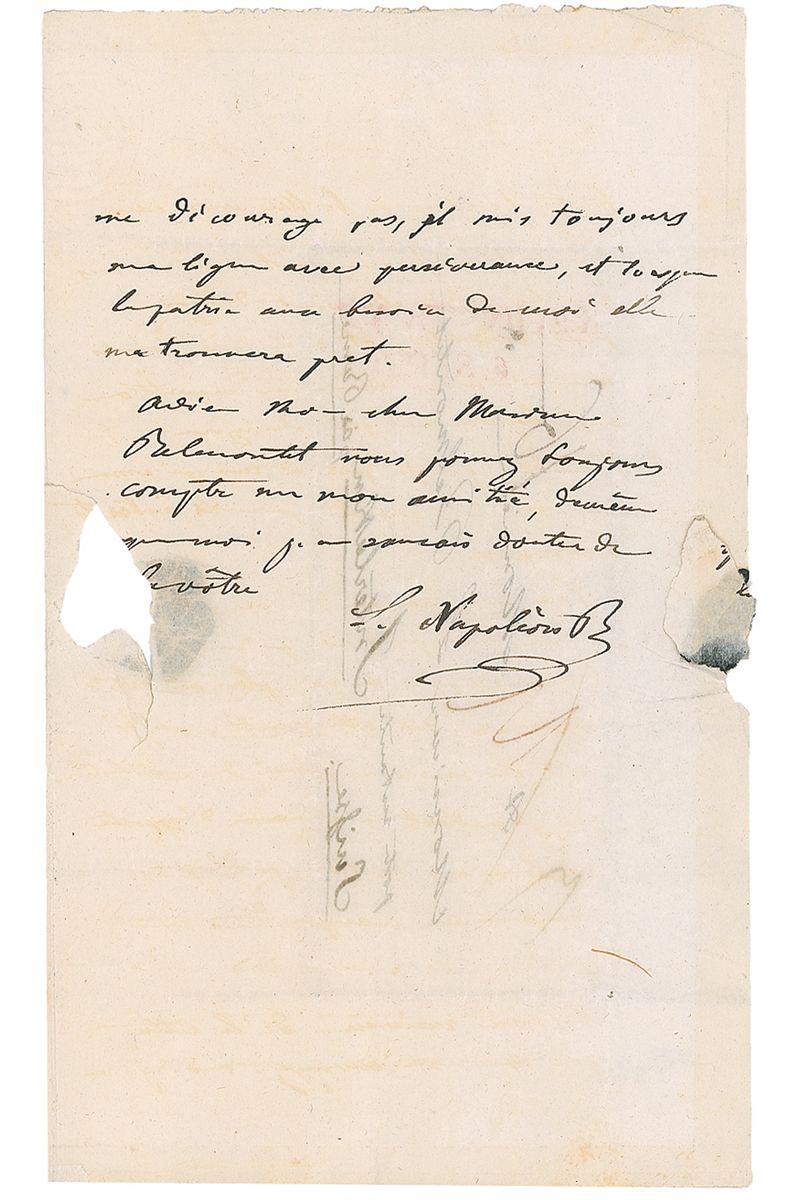 me décourage pas, je suis toujours
ma ligne avec persévérance, et lorsque
la patrie aura besoin de moi elle
me trouvera prêt.
Adieu mon cher Monsieur
Belmontet vous pouvez toujours
compter sur mon amitié, de même
que moi je ne saurais douter de
la vôtre
L. Napoléon B